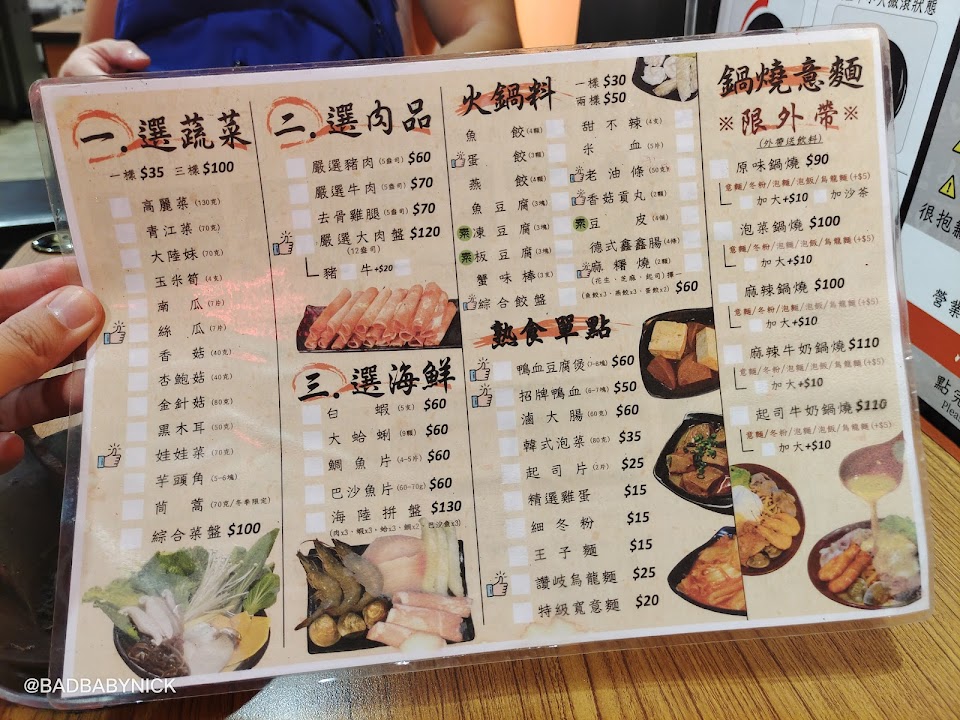 一.選蔬菜
一樣 $35 三樣 $100
高麗菜 (130克)
青江菜 (70克)
大陸妹 (70克)
玉米筍 (4支)
南瓜 (7片)
絲瓜 (7片)
香菇 (40克)
杏鮑菇 (40克)
金針菇 (80克)
黑木耳 (50克)
娃娃菜 (70克)
芋頭角 (5-6塊)
茼蒿 (70克/冬季限定)
綜合菜盤 $100
二.選肉品
嚴選豬肉 (5盎司) $60
嚴選牛肉 (5盎司) $70
去骨雞腿 (5盎司) $70
嚴選大肉盤 $120
(12盎司)
豬 牛 +$20
三.選海鮮
白蝦 (5隻) $60
大蛤蜊 (9顆) $60
鯛魚片 (4-5片) $60
巴沙魚片 (60-70g) $60
海陸拼盤 $130
(肉x3、蝦x3、蛤x3、鯛x2、巴沙魚x3)
火鍋料
一樣 $30
兩樣 $50
魚餃 (4顆)
蛋餃 (3顆)
燕餃 (4顆)
魚豆腐 (3塊)
素 凍豆腐 (3塊)
素 板豆腐 (2塊)
蟹味棒 (3支)
綜合餃盤 (魚餃x3、燕餃x3、蛋餃x2) $60
甜不辣 (4支)
米血 (5片)
老油條 (50克)
香菇貢丸 (2顆)
素 豆皮
德式鑫鑫腸 (4條)
麻糬燒 (2顆)
(花生、芝麻、起司)擇一
熟食單點
鴨血豆腐煲 $60
招牌鴨血 (6-7塊) $50
滷大腸 (60克) $60
韓式泡菜 (80克) $35
起司片 (2片) $25
精選雞蛋 $15
細冬粉 $15
王子麵 $15
讚岐烏龍麵 $25
特級寬意麵 $20
鍋燒意麵
※限外帶※
(外帶送飲料)
原味鍋燒 $90
意麵/冬粉/泡麵/泡飯/烏龍麵(+$5)
加大+$10 加沙茶
泡菜鍋燒 $100
意麵/冬粉/泡麵/泡飯/烏龍麵(+$5)
加大+$10
麻辣鍋燒 $100
意麵/冬粉/泡麵/泡飯/烏龍麵(+$5)
加大+$10
麻辣牛奶鍋燒 $110
意麵/冬粉/泡麵/泡飯/烏龍麵(+$5)
加大+$10
起司牛奶鍋燒 $110
意麵/冬粉/泡麵/泡飯/烏龍麵(+$5)
加大+$10
很抱
營業
點完
Plea
@BADBABYNICK